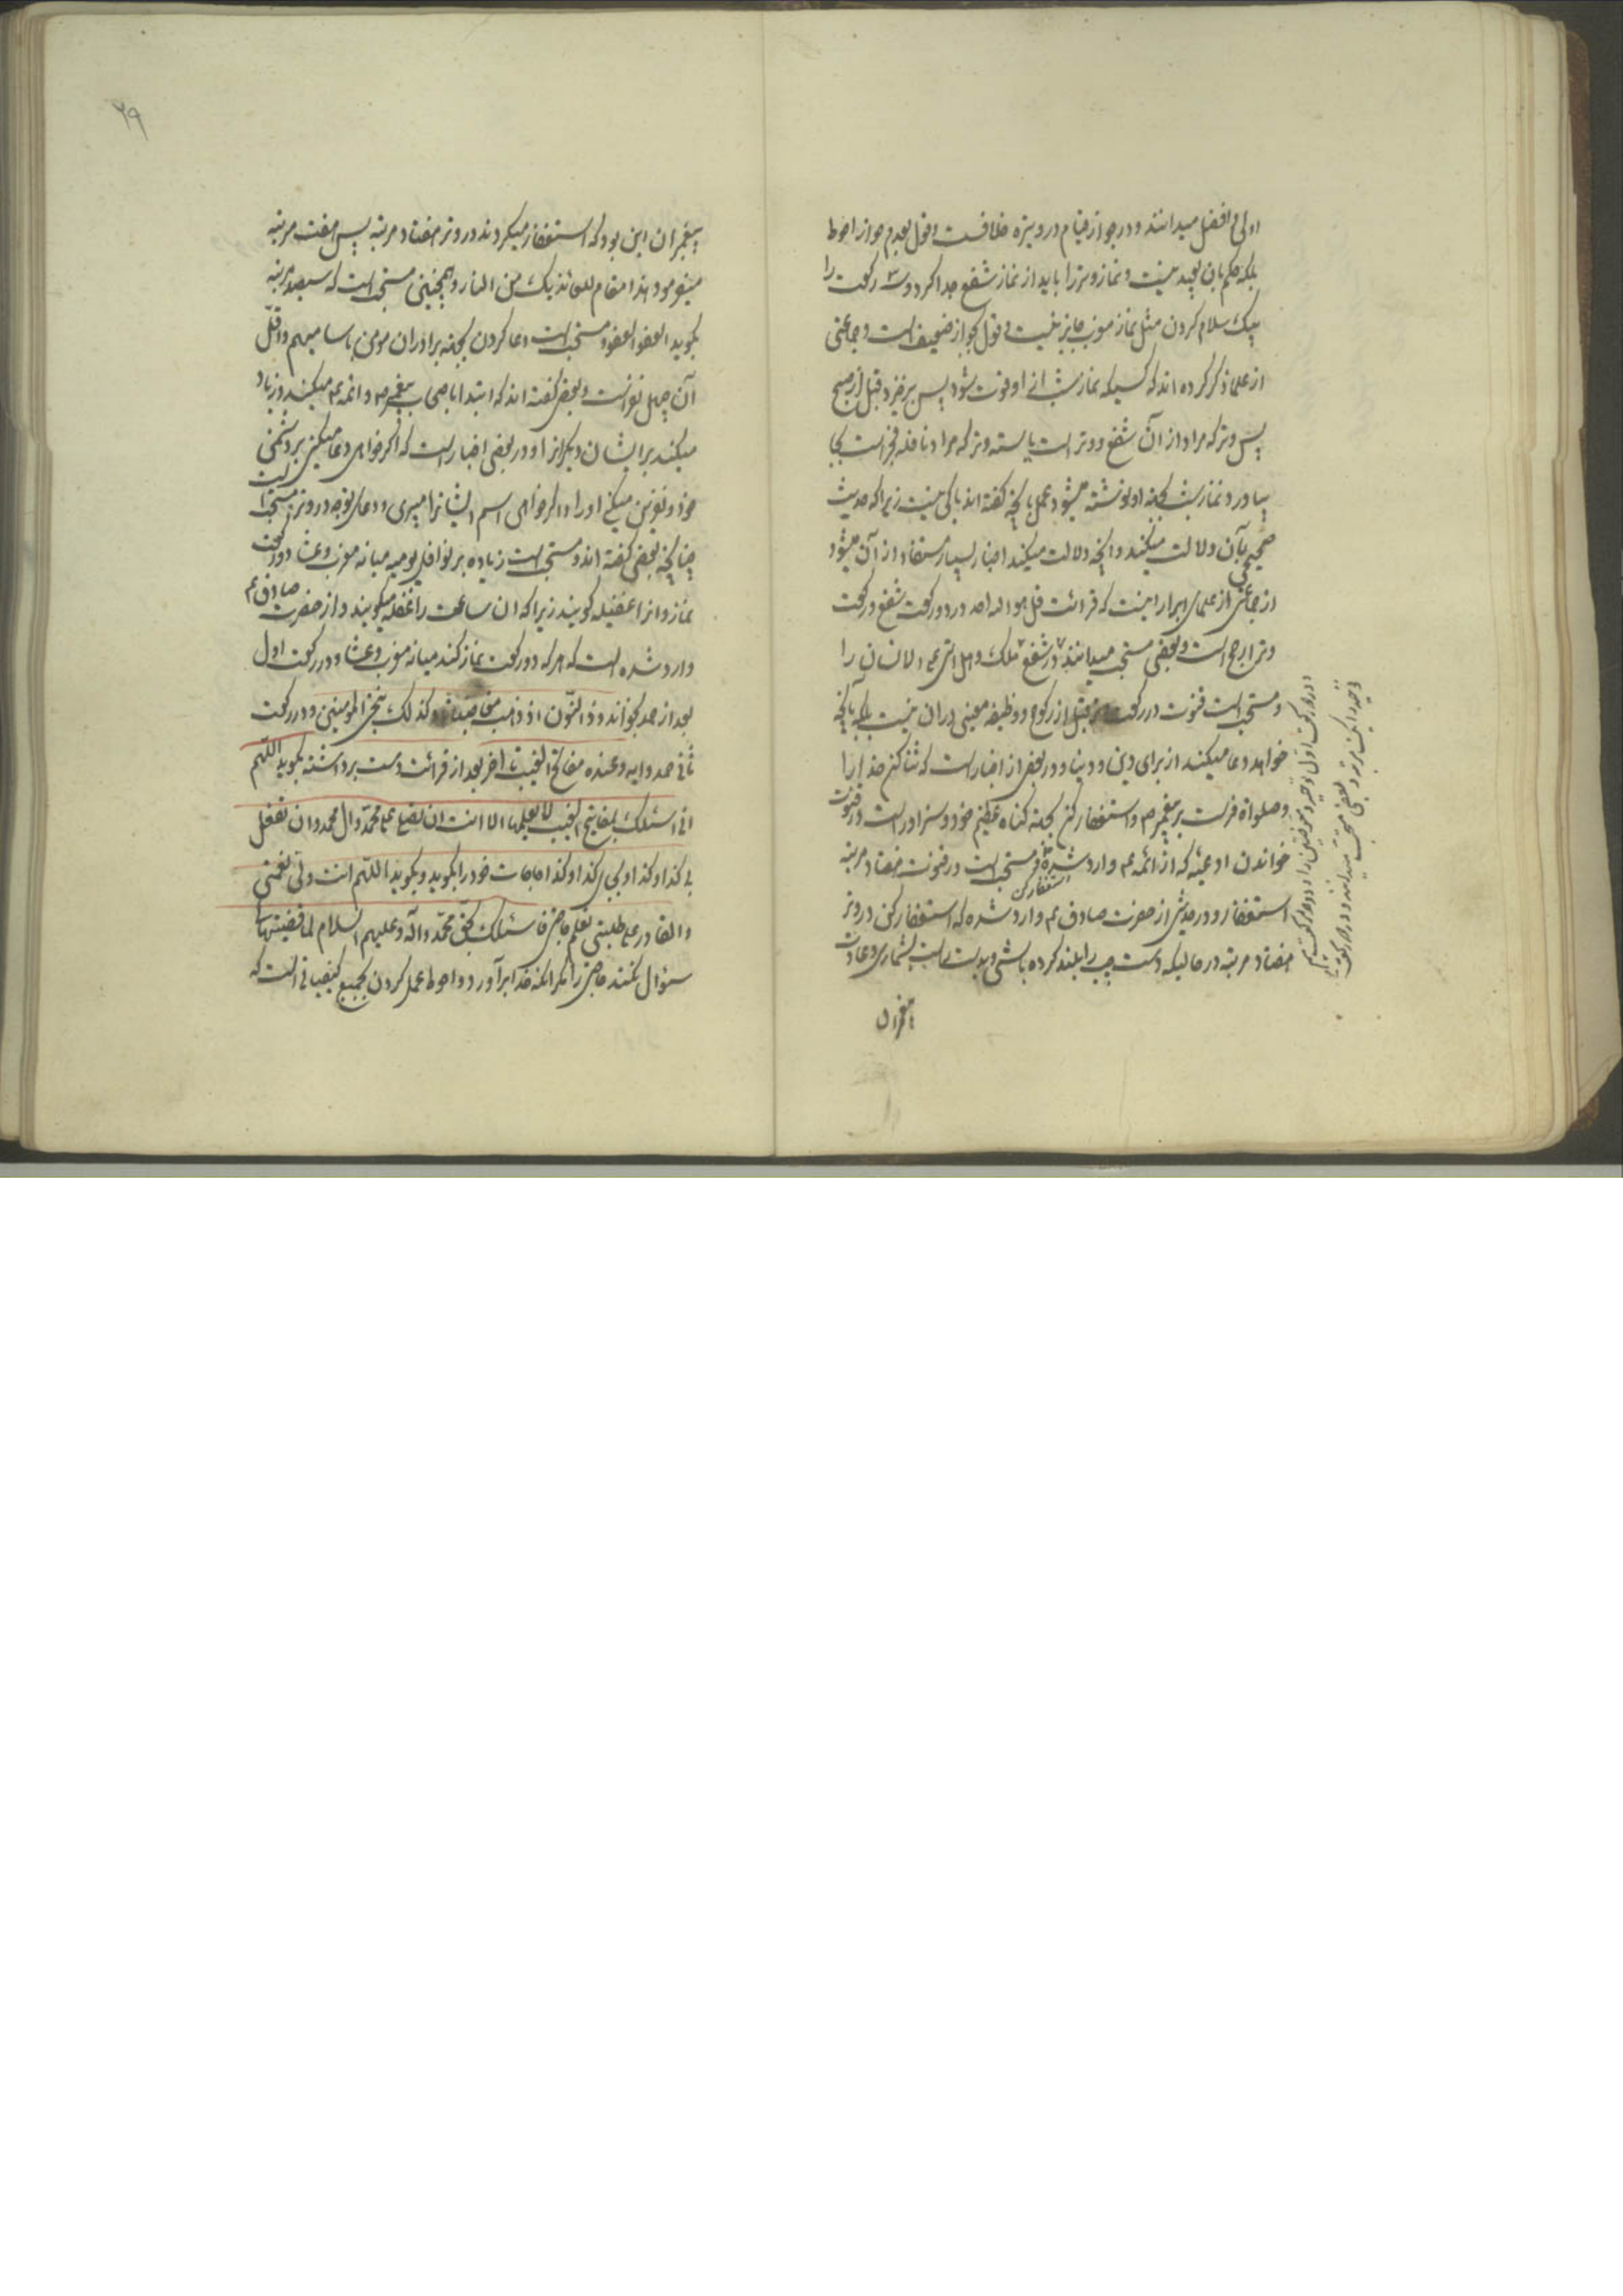 اولی و افضل میدانند و در جواز قیام در وتیره خلافست و قول بعدم جواز احوط
بلکه حکم بان بعید نیست و نماز وتر را باید از نماز شفع جدا کرد و سه رکعت را
بیک سلام کردن مثل نماز مغرب جایز نیست و قول بجواز ضعیف است و جماعتی
از علما ذکر کرده اند که کسیکه نماز شب از او فوت شود پس برخیزد قبل از صبح
پس وتر که مراد از آن شفع و وتر است یا سنه وتر که مراد نافله فجر است بجا
بیاورد نماز شب بجهة او نوشته میشود عمل بانچه گفته اند باکی نیست زیرا که حدیث
صحیحی بآن دلالت میکند و انچه دلالت میکند اخبار بسیار مستفاد از آن میشود
از جماعتی از علمای ابرار اینست که قرائت قل هو الله احد در دو رکعت شفع و رکعت
وتر ارجح است و بعضی مستحب میدانند در شفع ملک و هل اتی علی الانسان را
و مستحب است قنوت در رکعت وتر قبل از رکوع و وظیفه معینی در ان نیست بلکه بانچه
خواهد دعا میکند از برای دین و دنیا و در بعض از اخبار است که ثنا کن خدا را
و صلواة فرست بر پیغمبر ص و استغفار کن بجهة گناه عظیم خود و سزاوار است در قنوت
خواندن ادعیه که از ائمه ع وارد شده و مستحب است در قنوت هفتاد مرتبه
استغفار کن
استغفار و در حدیثی از حضرت صادق ع وارد شده که استغفار کن در وتر
هفتاد مرتبه در حالیکه دست چپ را بلند کرده باشی و بدست راست بشماری و عادت
پیغمبران
در رکعت اول توحید و معوذتین را و در رکعت
توحید و بعضی مستحب میدانند و در هر رکعت
۲۹
پیغمبران این بود که استغفار میکردند در وتر هفتاد مرتبه پس هفت مرتبه
میفرمود هذا مقام العائذ بک من النار و همچنین مستحب است که سیصد مرتبه
بگوید العفو العفو و مستحب است دعا کردن بجهة برادران مومن باسامیهم و اقل
آن چهل نفر است و بعض گفته اند که ابتدا باصحاب پیغمبر ص و ائمه ع میکند و زیاد
میکند بر ایشان دیگران را و در بعضی اخبار است که اگر خواهی دعا میکنی بر دشمن
خود و نفرین میکنی او را و اگر خواهی اسم ایشانرا میبری و دعای توجه در وتر مستحب است
چنانچه بعضی گفته اند و مستحب است زیاده بر نوافل یومیه میانه مغرب و عشا دو رکعت
نماز و انرا غفیله گویند زیرا که ان ساعت را غفله میگویند و از حضرت صادق ع
وارد شده است که هر که دو رکعت نماز کند میانه مغرب و عشا و در رکعت اول
بعد از حمد بخواند و ذا النّون اذ ذهب مغاضبا تا و کذلک ننجی المؤمنین و در رکعت
ثانی حمد و ایه و عنده مفاتح الغیب تا اخر بعد از قرائت دست برداشته بگوید اللّهم
انی اسئلک بمفاتیح الغیب التی لا یعلمها الا انت ان تصلی علی محمّد و آل محمد و ان تفعل
بی کذا و کذا و بجای کذا و کذا حاجات خود را بگوید و بگوید اللّهم انت ولی نعمتی
و القادر علی طلبتی تعلم حاجتی فاسئلک بحقّ محمّد و اله علیه و علیهم السلام لما قضیتها لی
سئوال نکند حاجتی را مگر انکه خدا برآورد و احوط عمل کردن بجمیع کیفیاتی است که